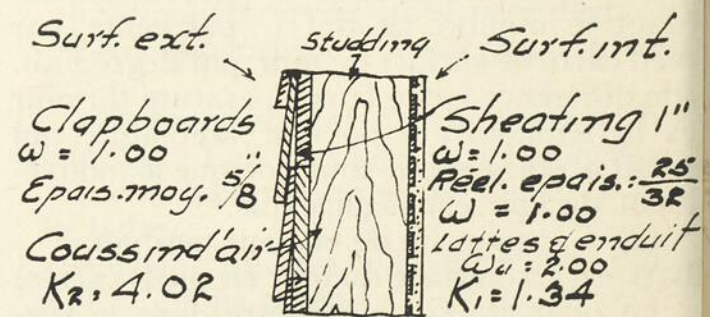 Surf. ext.
Studding
Surf. int.
Clapboards
ω = 1.00
Epais. moy. 5/8"
Coussin d'air
K2 = 4.02
Sheating 1"
ω = 1.00
Réel. epais. : 25/32
ω = 1.00
Lattes & enduit
ωa = 2.00
K1 = 1.34